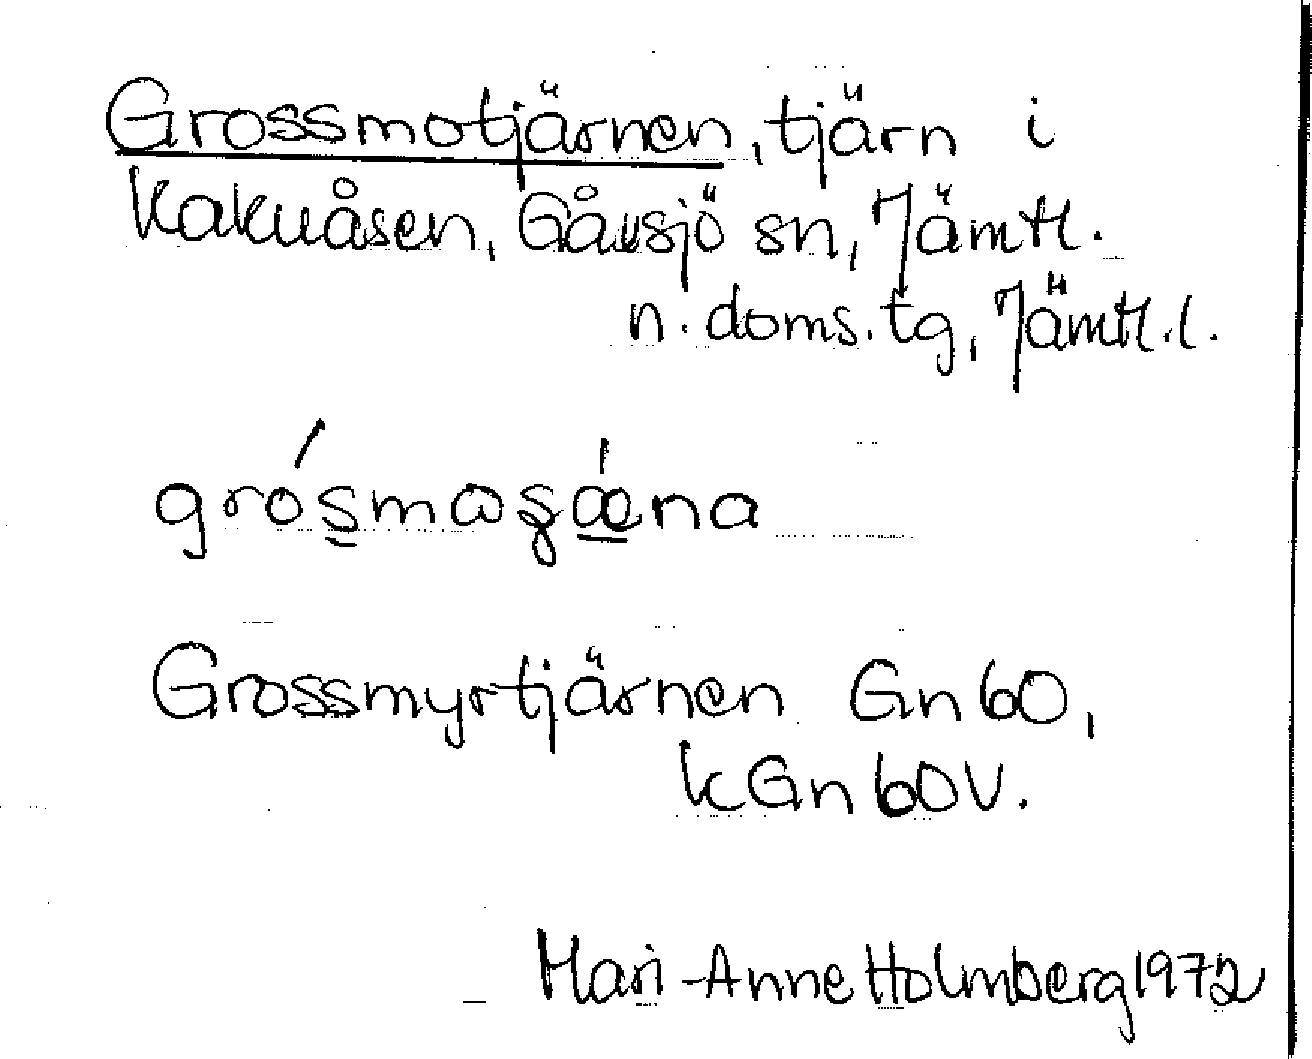 Grossmotjärnen, tjärn i
Kakuåsen, Gåvsjö sn, Jämtl.
n. doms.tg, Jämtl.l.
Grossmyrtjärnen Gn 60,
kGn 60V.
Mari-Anne Holmberg 1972